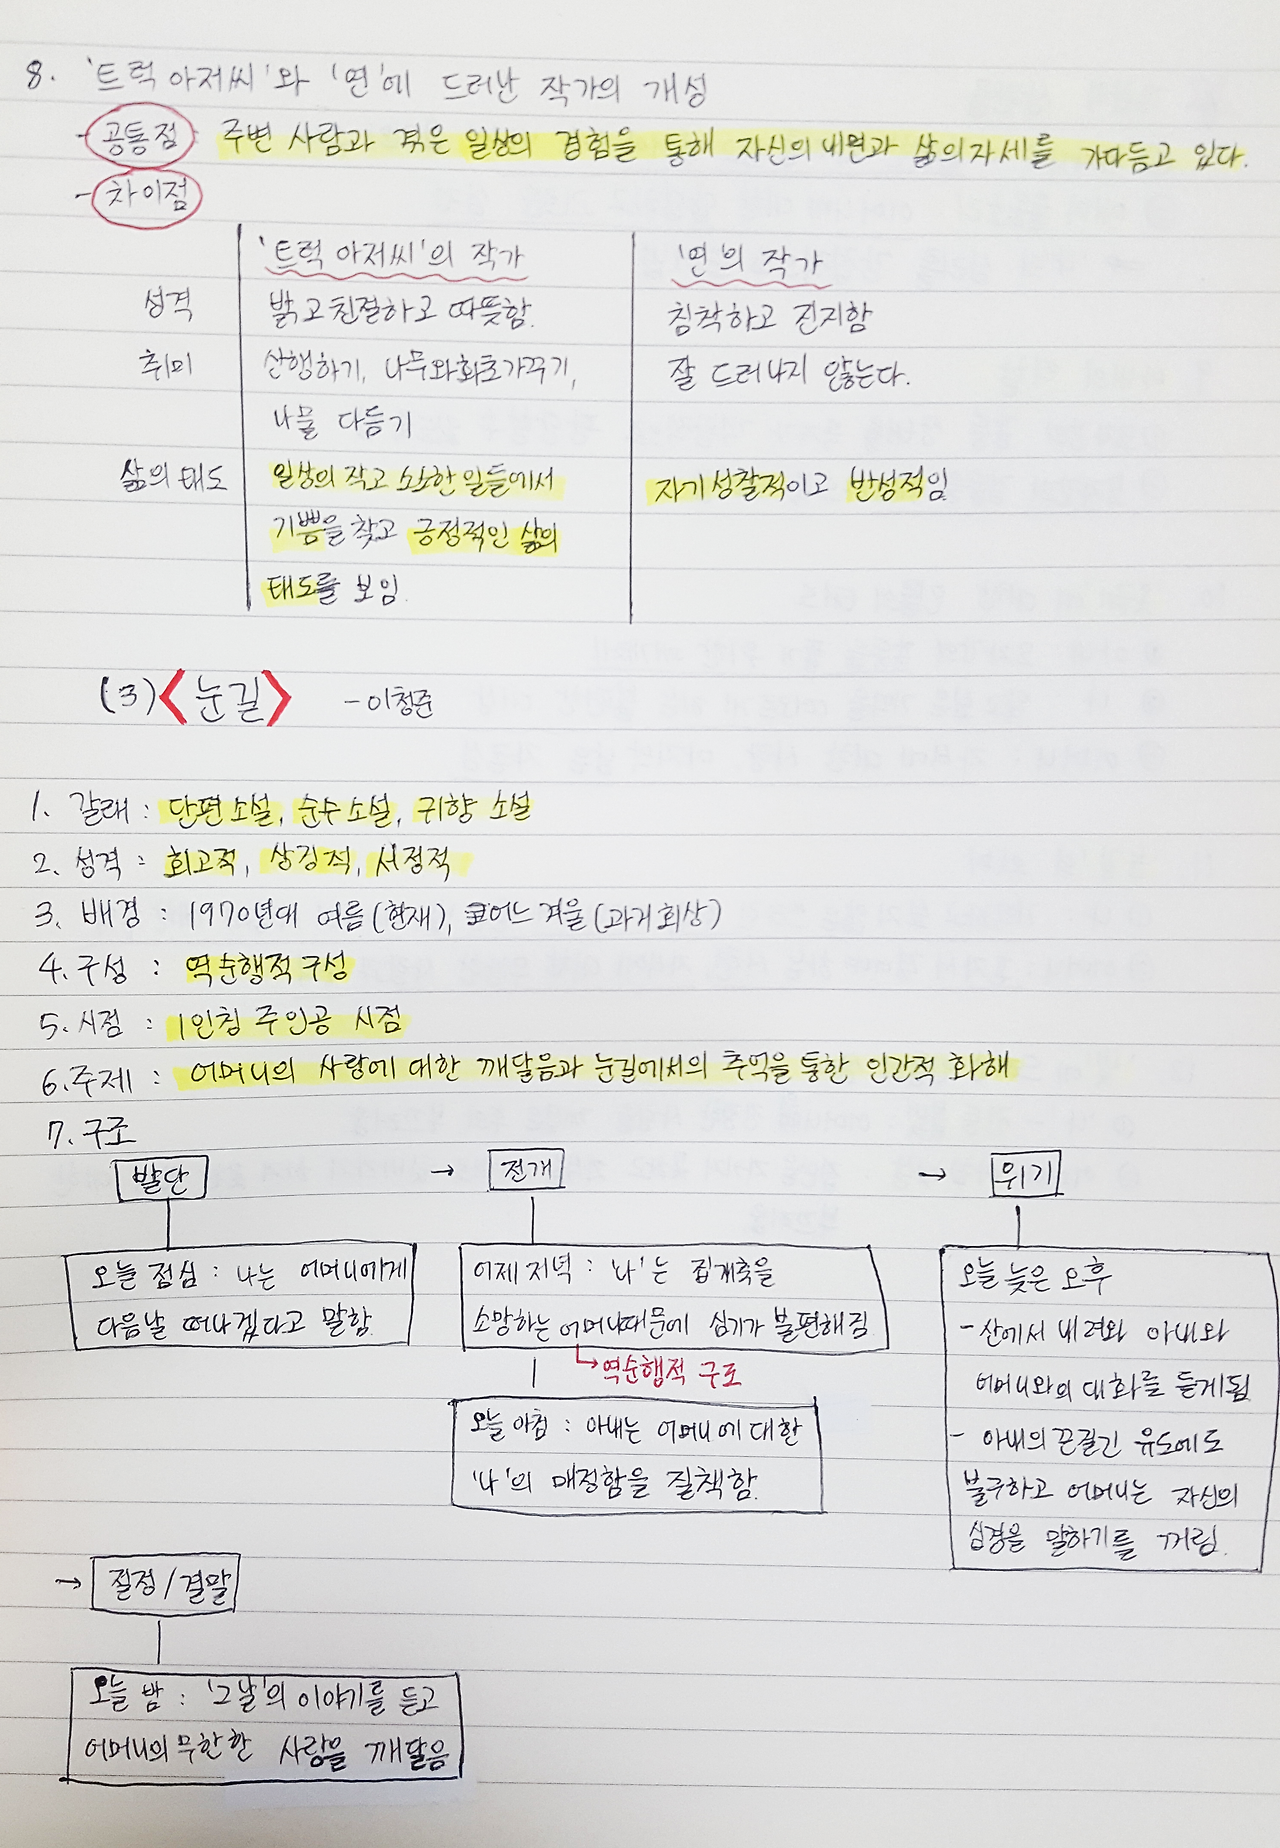 8. '트럭 아저씨'와 '연'에 드러난 작가의 개성
- 공통점 : 주변 사람과 겪은 일상의 경험을 통해 자신의 내면과 삶의자세를 가다듬고 있다.
- 차이점
'트럭 아저씨'의 작가 '연'의 작가
성격 밝고친절하고 따뜻함. 침착하고 진지함
취미 산행하기, 나무와화초가꾸기, 잘 드러나지 않는다.
나물 다듬기
삶의 태도 일상의 작고 소소한 일들에서 자기성찰적이고 반성적임
기쁨을 찾고 긍정적인 삶의
태도를 보임.
(3) <눈길> - 이청준
1. 갈래 : 단편소설, 순수소설, 귀향 소설
2. 성격 : 회고적, 상징적, 서정적
3. 배경 : 1970년대 여름(현재), 어느 겨울(과거회상)
4. 구성 : 역순행적 구성
5. 시점 : 1인칭 주인공 시점
6. 주제 : 어머니의 사랑에 대한 깨달음과 눈길에서의 추억을 통한 인간적 화해
7. 구조
발단 → 전개 → 위기
오늘 점심 : 나는 어머니에게
다음날 떠나겠다고 말함.
어제저녁 : '나'는 집개축을
소망하는 어머니때문에 심기가 불편해짐
↳역순행적 구조
오늘 아침 : 아내는 어머니에 대한
'나'의 매정함을 질책함.
오늘 늦은 오후
- 산에서 내려와 아내와
어머니와의 대화를 듣게됨
- 아내의 끈질긴 유도에도
불구하고 어머니는 자신의
심경을 말하기를 꺼림.
→ 절정/결말
오늘 밤 : '그날'의 이야기를 듣고
어머니의 무한한 사랑을 깨달음